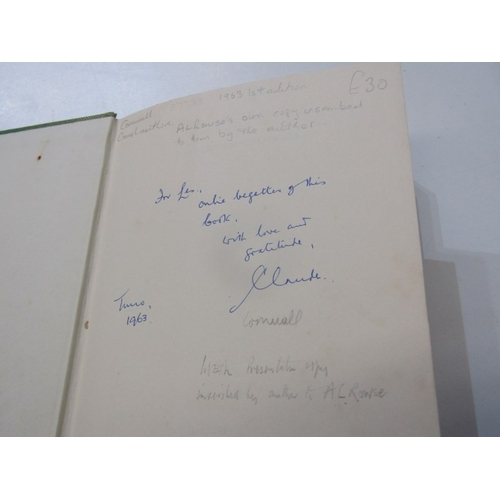 1963 1st edition
£30
Cornwall
ALRowse's own copy inscribed
to him by the author
For Les,
onlie begetter of this
book,
with love and
gratitude,
Claude.
Truro,
1963.
Cornwall
Presentation copy
inscribed by author to ALRowse